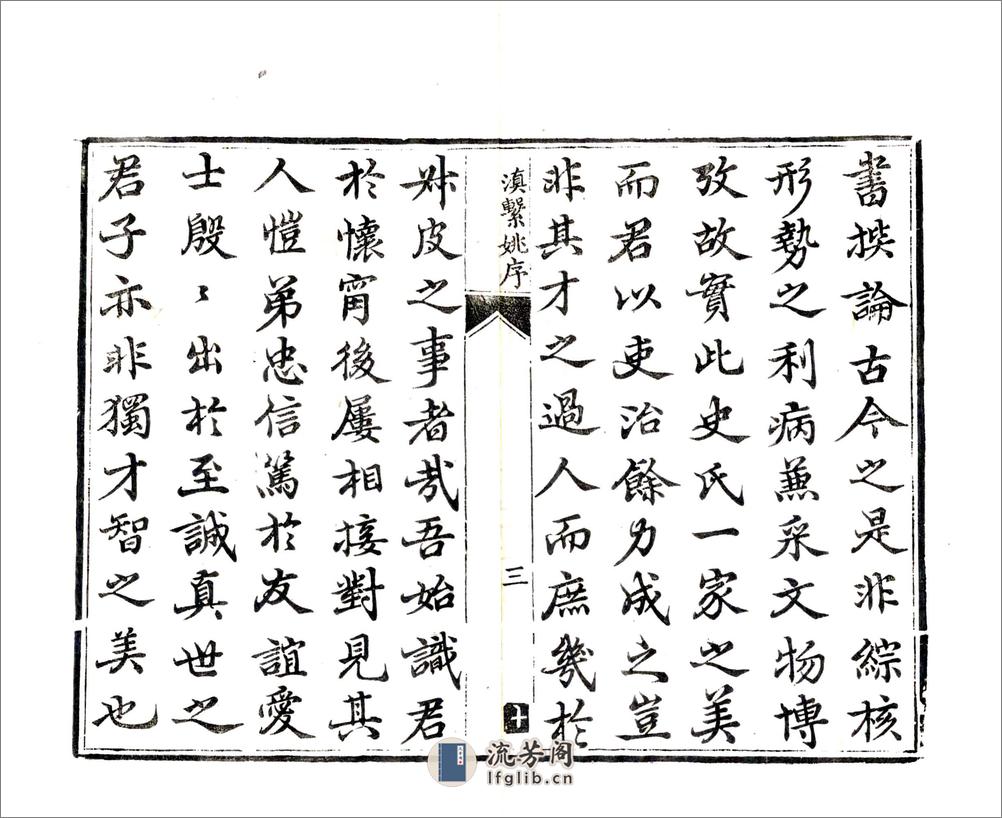 書捴論古今之是非綜核
形勢之利病兼采文物博
攷故實此史氏一家之美
而君以吏治餘力成之豈
非其才之過人而庶幾於
滇繫姚序
三
十
叔皮之事者哉吾始識君
於懷甯後屢相接對見其
人愷弟忠信篤於友誼愛
士殷〻出於至誠真世之
君子亦非獨才智之美也
流芳阁
lfglib.cn